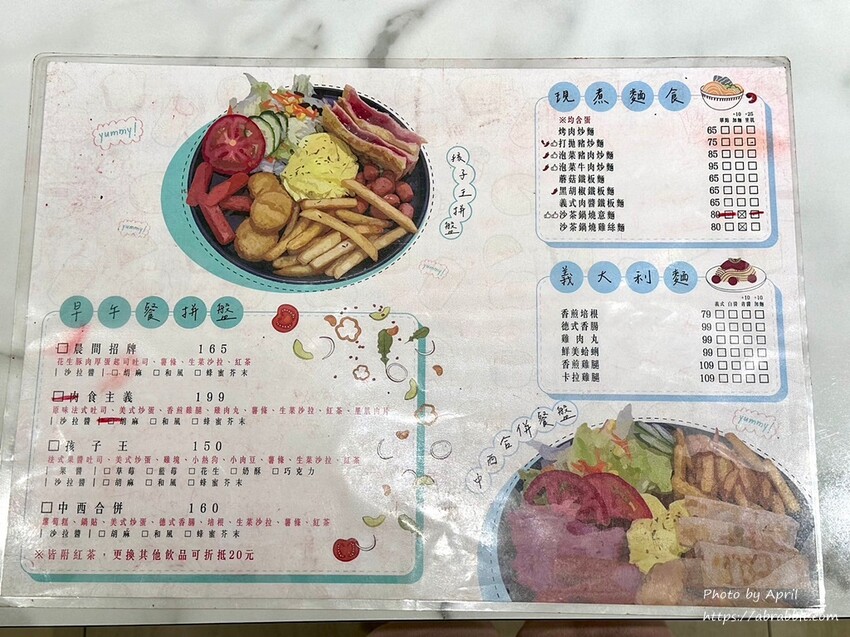 yummy!
孩子王拼盤
yummy!
yummy!
早午餐拼盤
□晨間招牌 165
花生豚肉厚蛋起司吐司、薯條、生菜沙拉、紅茶
|沙拉醬|□胡麻 □和風 □蜂蜜芥末
□肉食主義 199
原味法式吐司、美式炒蛋、香煎雞腿、雞肉丸、薯條、生菜沙拉、紅茶、里肌肉片
|沙拉醬|□胡麻 □和風 □蜂蜜芥末
□孩子王 150
法式果醬吐司、美式炒蛋、雞塊、小熱狗、小肉豆、薯條、生菜沙拉、紅茶
|果醬|□草莓 □藍莓 □花生 □奶酥 □巧克力
|沙拉醬|□胡麻 □和風 □蜂蜜芥末
□中西合併 160
蘿蔔糕、鍋貼、美式炒蛋、德式香腸、培根、生菜沙拉、薯條、紅茶
|沙拉醬|□胡麻 □和風 □蜂蜜芥末
※皆附紅茶，更換其他飲品可折抵20元
現煮麵食
+10 +25
單點 加麵
※均含蛋
烤肉炒麵 65□□□
打拋豬炒麵 75□□□
泡菜豬肉炒麵 85□□□
泡菜牛肉炒麵 95□□□
蘑菇鐵板麵 65□□□
黑胡椒鐵板麵 65□□□
義式肉醬鐵板麵 65□□□
沙茶鍋燒意麵 80□☒□
沙茶鍋燒雞絲麵 80□☒□
義大利麵
+10 +10
義式 白醬 青醬 加麵
香煎培根 79□□□□
德式香腸 99□□□□
雞肉丸 99□□□□
鮮美蛤蜊 99□□□□
香煎雞腿 109□□□□
卡拉雞腿 109□□□□
中西合併餐盤
yummy!
Photo by April
https://abrabbit.com